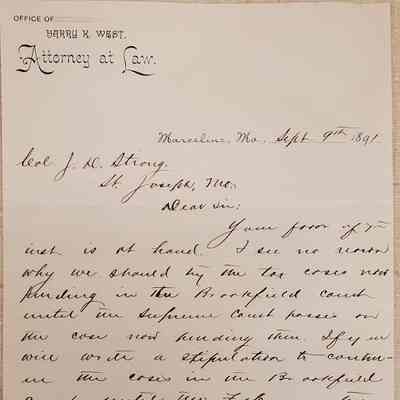 OFFICE OF
HARRY K. WEST.
Attorney at Law.
Marceline, Mo. Sept 9th 1891.
Col J. D. Strong.
St. Joseph, Mo.
Dear Sir:
Your favor of 7th
inst is at hand. I see no reason
why we should try the tax cases now
pending in the Brookfield court
until the Supreme Court passes on
the case now pending there. If you
will write a stipulation to continu-
ue the cases in the Brookfield